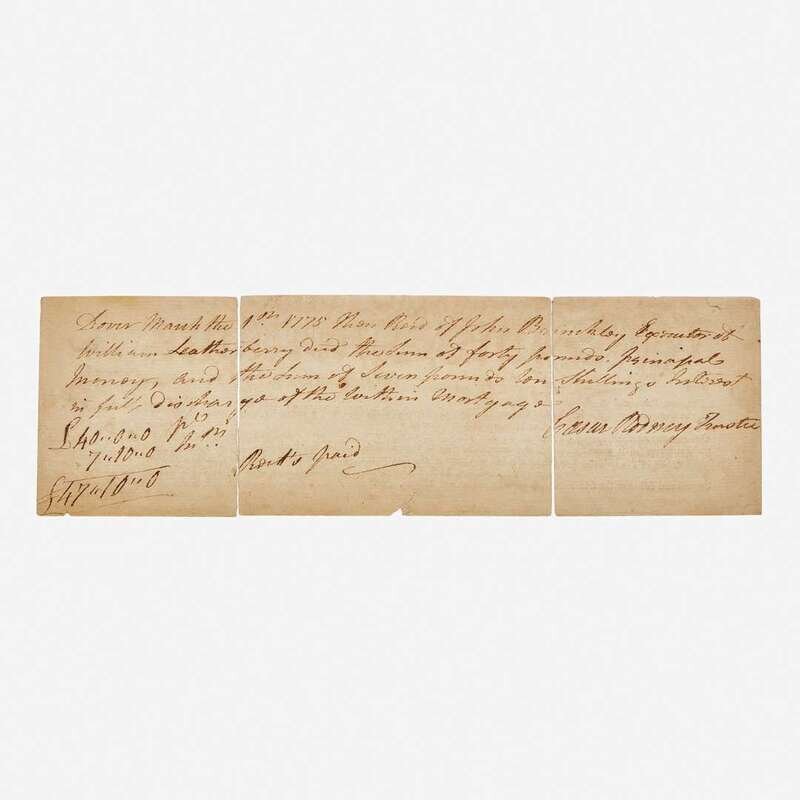 Dover March the 1st 1775 then Recd of John Brinckley Executor of
William Leatherberry decd the Sum of forty pounds principal
money, and the Sum of Seven pounds ten Shillings Interest
in full discharge of the within mortgage
Cæsar Rodney Trustee
£40"0"0 pl
7"10"0 In
£47"10"0
paid